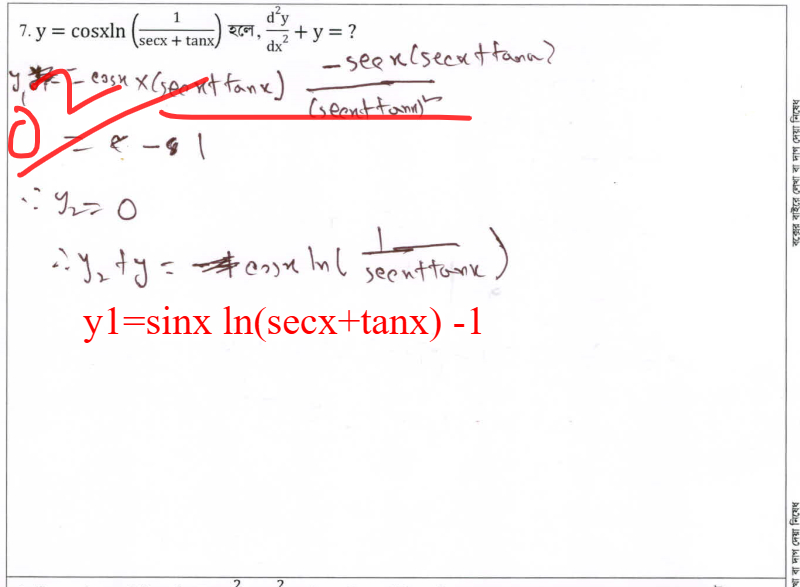 7. y = cosxln (1/(secx + tanx)) হলে, d²y/dx² + y = ?
y₁ = cosx × (secx+tanx) (-secx(secx+tanx))/(secx+tanx)²
0 = -1
∴ y₂ = 0
∴ y₂ + y = cosx ln(1/(secx+tanx))
y1=sinx ln(secx+tanx) -1
বক্সের বাইরে লেখা বা দাগ দেয়া নিষেধ
বা দাগ দেয়া নিষেধ